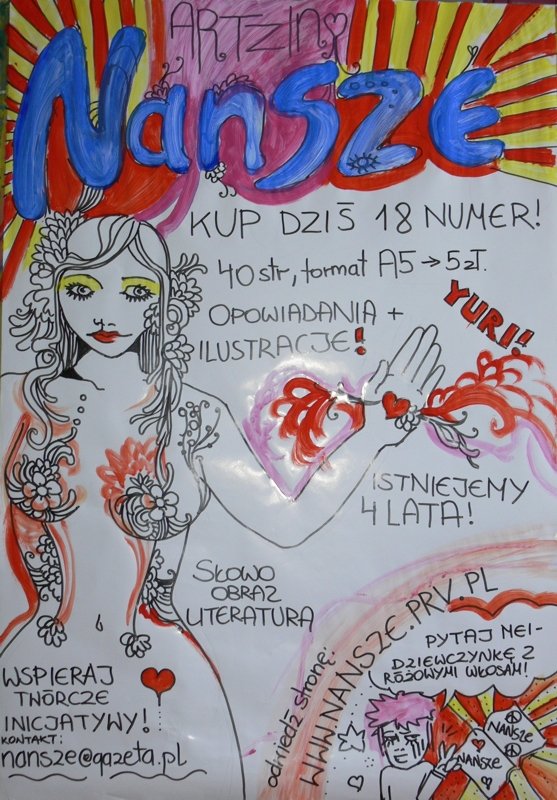 ARTZIN
Nansze
KUP DZIŚ 18 NUMER!
40 str, format A5 → 5 zł.
OPOWIADANIA +
ILUSTRACJE!
YURI!!
ISTNIEJEMY
4 LATA!
SŁOWO
OBRAZ
LITERATURA
odwiedź stronę:
WWW.NANSZE.PRV.PL
WSPIERAJ
TWÓRCZE
INICJATYWY!
KONTAKT:
nansze@gazeta.pl
PYTAJ NEI-
DZIEWCZYNKĘ Z
RÓŻOWYMI WŁOSAMI!
NANSZE
NANSZE